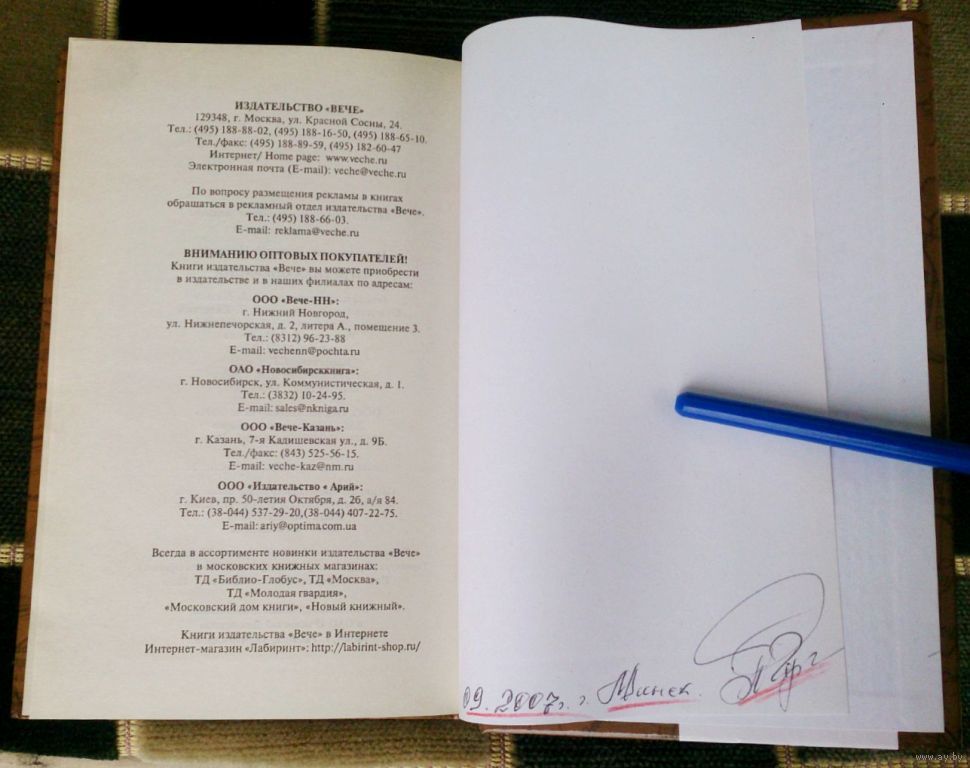 ИЗДАТЕЛЬСТВО «ВЕЧЕ»
129348, г. Москва, ул. Красной Сосны, 24.
Тел.: (495) 188-88-02, (495) 188-16-50, (495) 188-65-10.
Тел./факс: (495) 188-89-59, (495) 182-60-47
Интернет/ Home page: www.veche.ru
Электронная почта (E-mail): veche@veche.ru
По вопросу размещения рекламы в книгах
обращаться в рекламный отдел издательства «Вече».
Тел.: (495) 188-66-03.
E-mail: reklama@veche.ru
ВНИМАНИЮ ОПТОВЫХ ПОКУПАТЕЛЕЙ!
Книги издательства «Вече» вы можете приобрести
в издательстве и в наших филиалах по адресам:
ООО «Вече-НН»:
г. Нижний Новгород,
ул. Нижнепечорская, д. 2, литера А., помещение 3.
Тел.: (8312) 96-23-88
E-mail: vechenn@pochta.ru
ОАО «Новосибирсккнига»:
г. Новосибирск, ул. Коммунистическая, д. 1.
Тел.: (3832) 10-24-95.
E-mail: sales@nkniga.ru
ООО «Вече-Казань»:
г. Казань, 7-я Кадишевская ул., д. 9Б.
Тел./факс: (843) 525-56-15.
E-mail: veche-kaz@nm.ru
ООО «Издательство « Арий»:
г. Киев, пр. 50-летия Октября, д. 26, а/я 84.
Тел.: (38-044) 537-29-20,(38-044) 407-22-75.
E-mail: ariy@optima.com.ua
Всегда в ассортименте новинки издательства «Вече»
в московских книжных магазинах:
ТД «Библио-Глобус», ТД «Москва»,
ТД «Молодая гвардия»,
«Московский дом книги», «Новый книжный».
Книги издательства «Вече» в Интернете
Интернет-магазин «Лабиринт»: http://labirint-shop.ru/
09.2007г. г. Минск.
www.ay.by